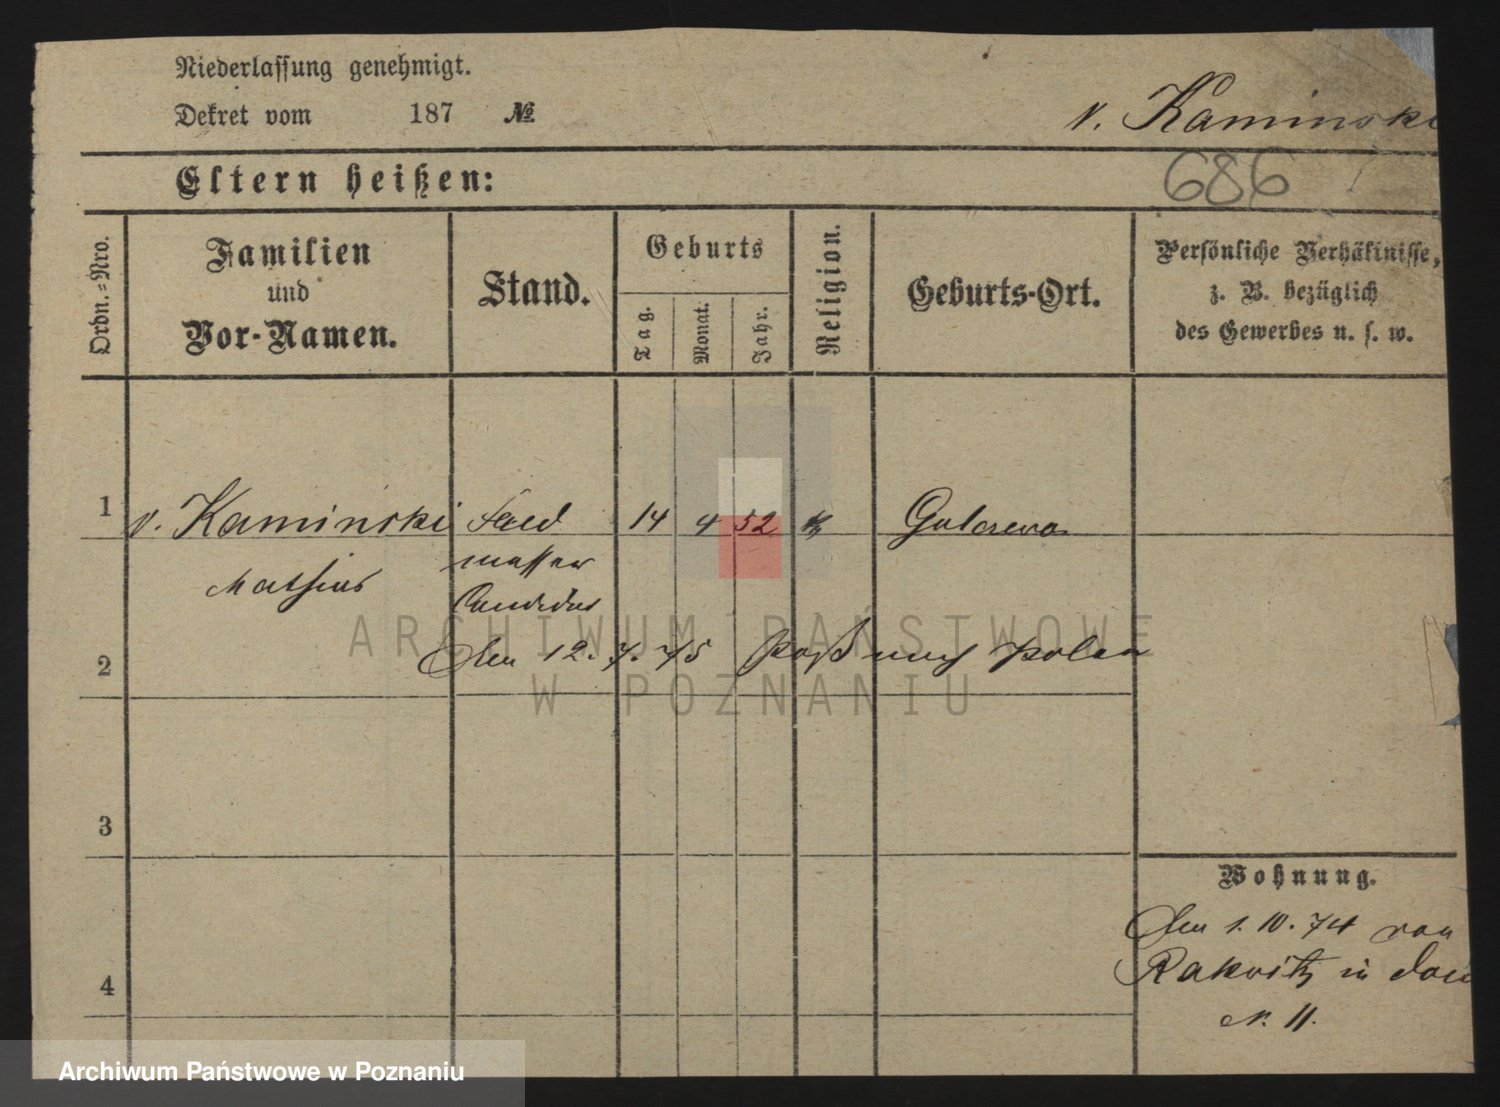 Niederlassung genehmigt.
Dekret vom 187 №
v. Kaminski
Eltern heißen:
686
Ordn.=Nro.
Familien
und
Vor-Namen.
Stand.
Geburts
Tag.
Monat.
Jahr.
Religion.
Geburts-Ort.
Persönliche Verhältnisse,
z. B. bezüglich
des Gewerbes u. s. w.
1 v. Kaminski Feld 14 4 52
messer
Mathias
Candidat
2 Den 12. 7. 75 Paß nach Polen
ARCHIWUM PAŃSTWOWE
W POZNANIU
3
Wohnung.
Den 1. 10. 74 von
Rakwitz in
4
N. 11.
Archiwum Państwowe w Poznaniu